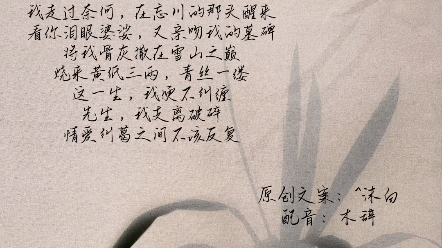 我走过奈何，在忘川的那头醒来
看你泪眼婆娑，又亲吻我的墓碑
将我骨灰撒在雪山之巅
烧来黄纸三两，青丝一缕
这一生，我便不纠缠
先生，我支离破碎
情爱纠葛之间不该反复
原创文案：^沐白
配音：木辞